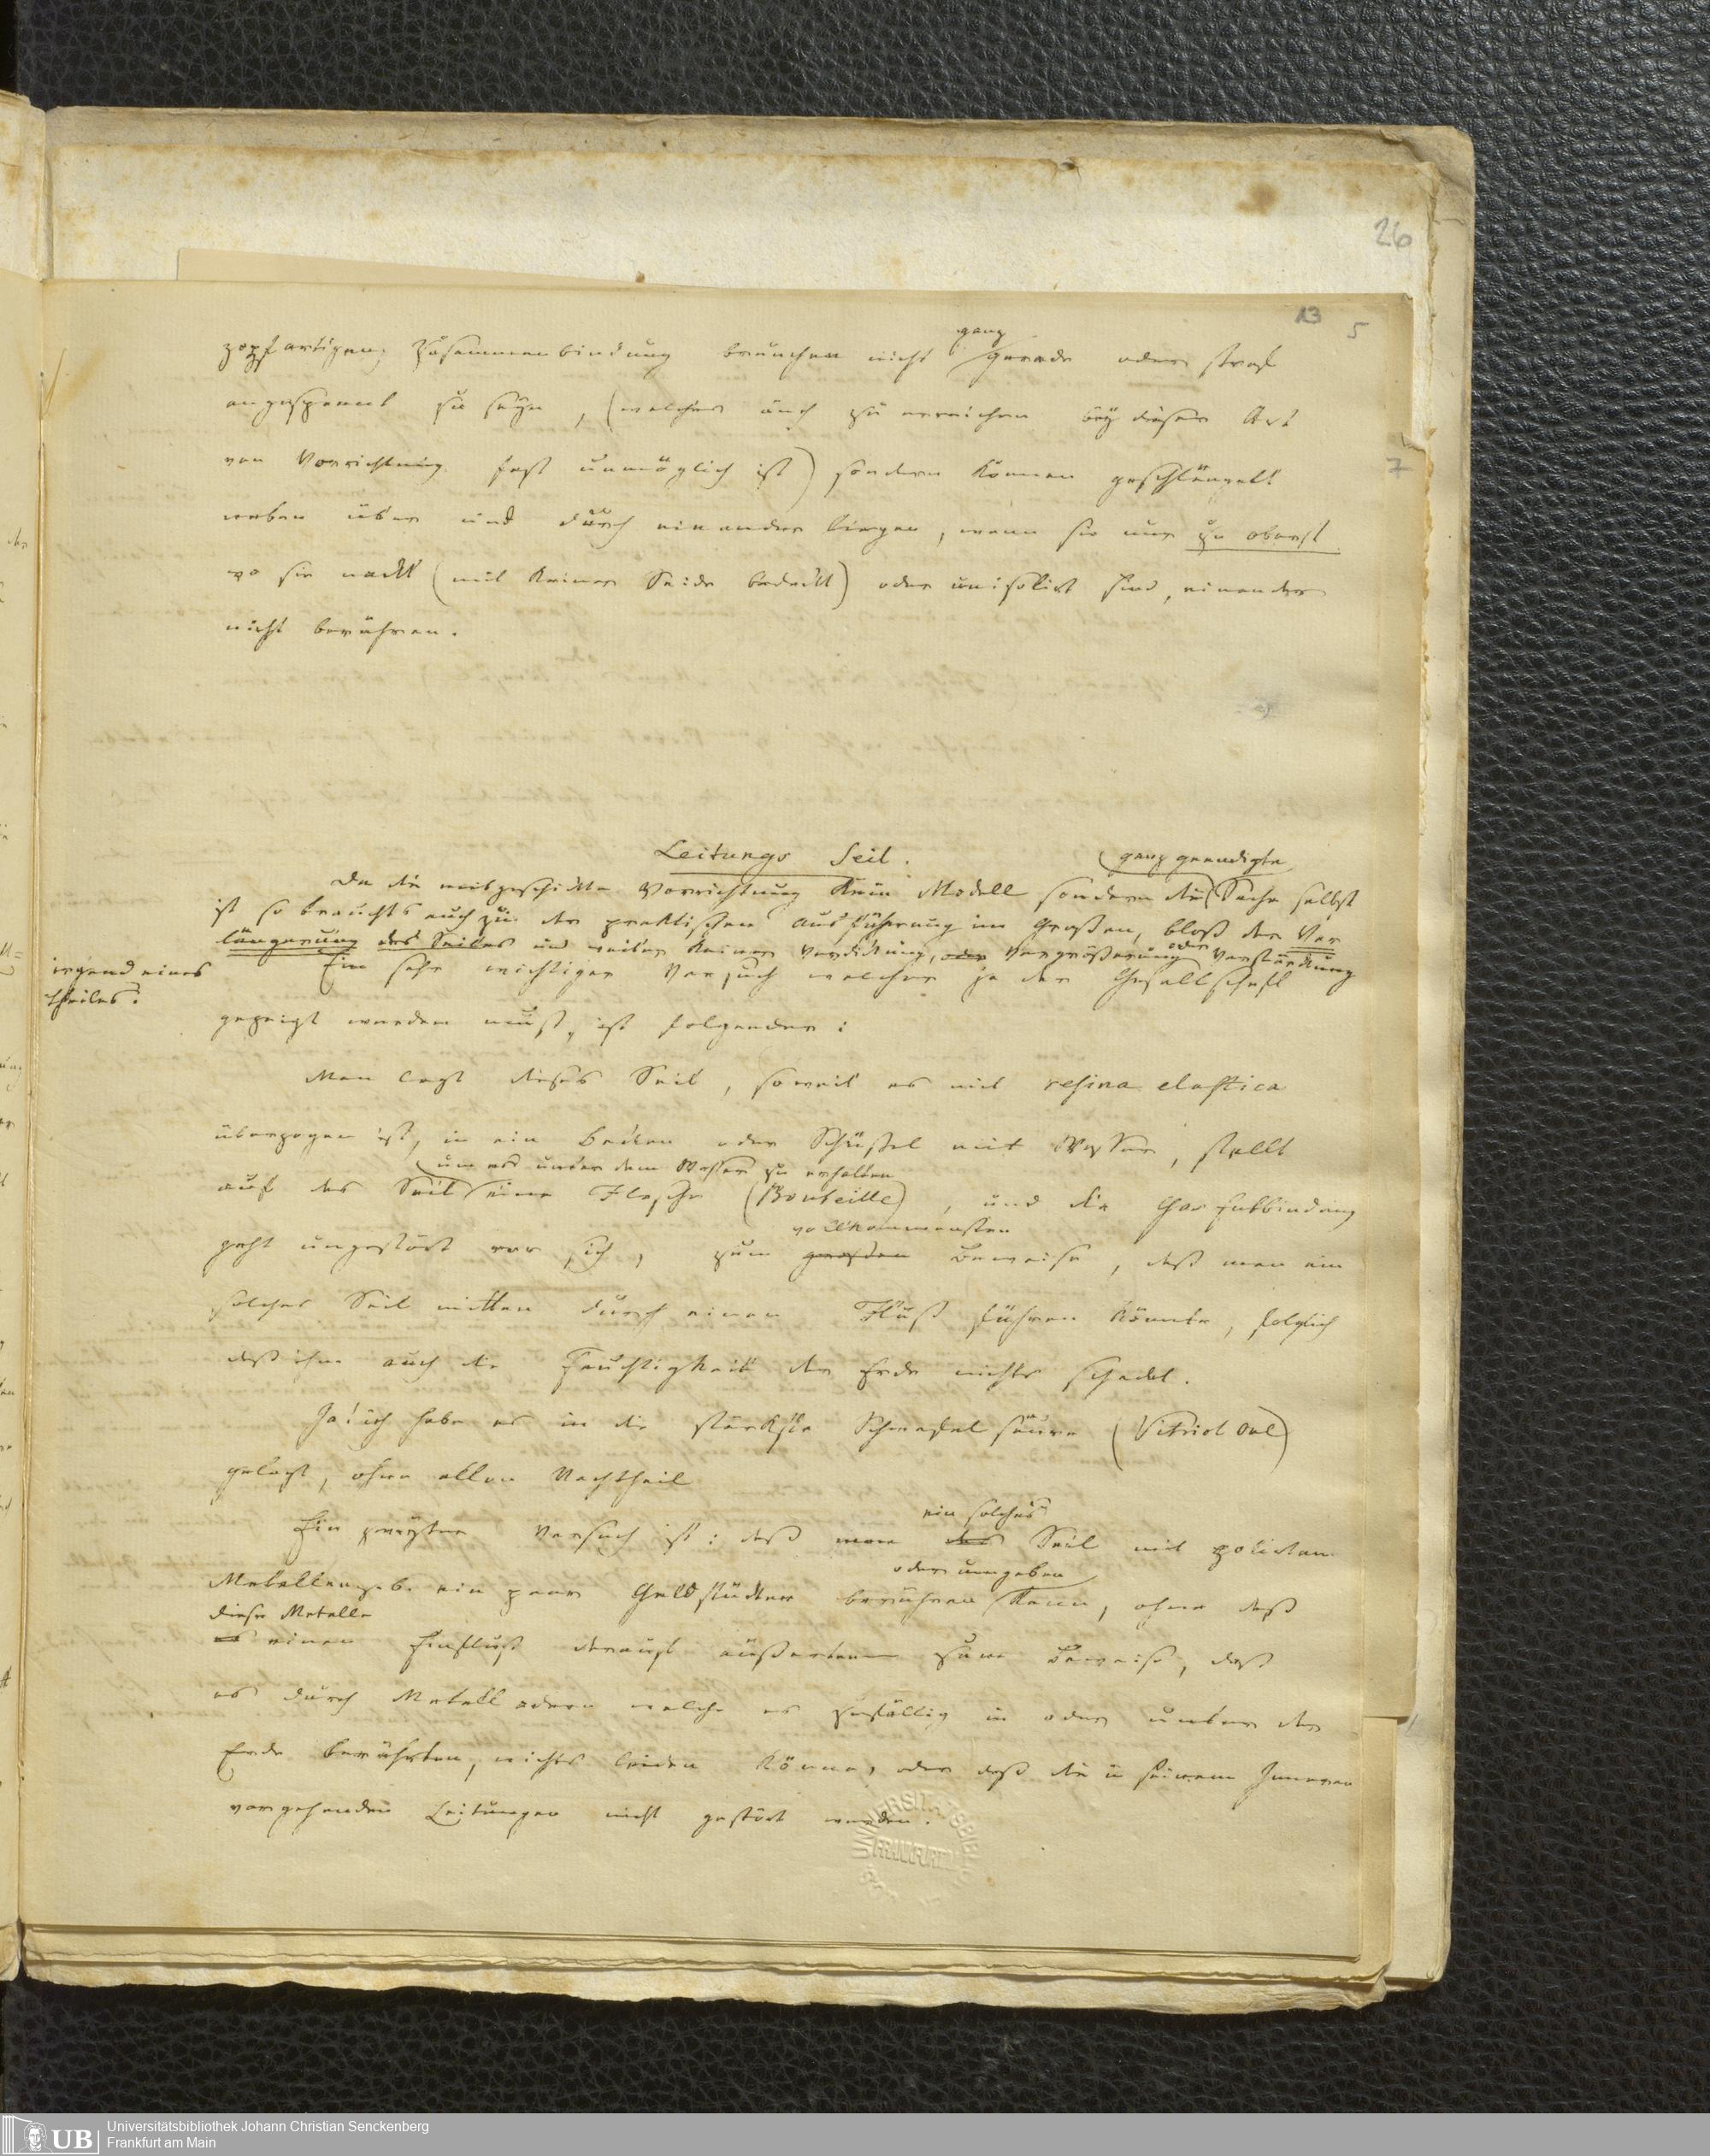 26
13 5
7
ganz
zopfartigen Zusammenbindung brauchen nicht gerade oder straf
angespannt zu seyn, (welches auch zu erreichen bey dieser Art
von Vorrichtung fast unmöglich ist) sondern können geschlängelt
neben über und durch einander liegen, wenn sie nur zu oberst
wo sie nackt (mit keiner Seide bedeckt) oder unisolirt sind, einander
nicht berühren.
Leitungs Seil.
(ganz geendigte
Da die mitgeschickte Vorrichtung kein Modell sondern die Sache selbst
ist so brauchts auch zu der praktischen Ausführung im Großen, bloß der Ver
längerung des Seiles und weiter keiner Verdickung, oder Vergrößerung oder Verstärkung
irgend eines
Theiles.
Ein sehr wichtiger Versuch welcher ja der Gesellschaft
gezeigt werden muß, ist folgender:
Man legt dieses Seil, soweit es mit resina elastica
überzogen ist, in ein Becken oder Schüßel mit Wasser, stellt
(um es unter dem Wasser zu erhalten
auf das Seil eine Flasche (Bouteille), und die Gas Entbindung
vollkommensten
geht ungestört vor sich, zum großen Beweise, daß man ein
solches Seil mitten durch einen Fluß führen könnte, folglich
daß ihm auch die Feuchtigkeit der Erde nichts schadet.
Ja! ich habe es in die stärkste Schwefelsäure (Vitriol Oel)
gelegt, ohne allen Nachtheil
ein solches
Ein zweyter Versuch ist: daß man das Seil mit
oder umgeben
Metallen z. b. ein paar Geldstücken berühren kann, ohne daß
diese Metalle
es einen Einfluß darauf äußerten zum Beweise, daß
es durch Metalladern welche es zufällig in oder unter der
Erde berührten, nichts leiden könne, oder daß die in seinem Inneren
vorgehenden Leitungen nicht gestört werden.
UB
Universitätsbibliothek Johann Christian Senckenberg
Frankfurt am Main